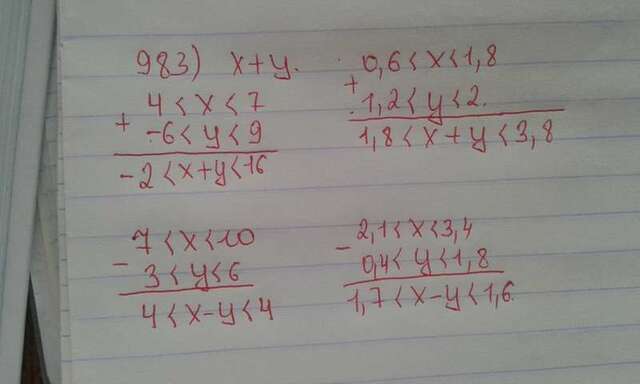 983) x+y.
4 < x < 7
+
-6 < y < 9
-2 < x+y < 16
0,6 < x < 1,8
+
1,2 < y < 2
1,8 < x+y < 3,8
7 < x < 10
-
3 < y < 6
4 < x-y < 4
2,1 < x < 3,4
-
0,4 < y < 1,8
1,7 < x-y < 1,6